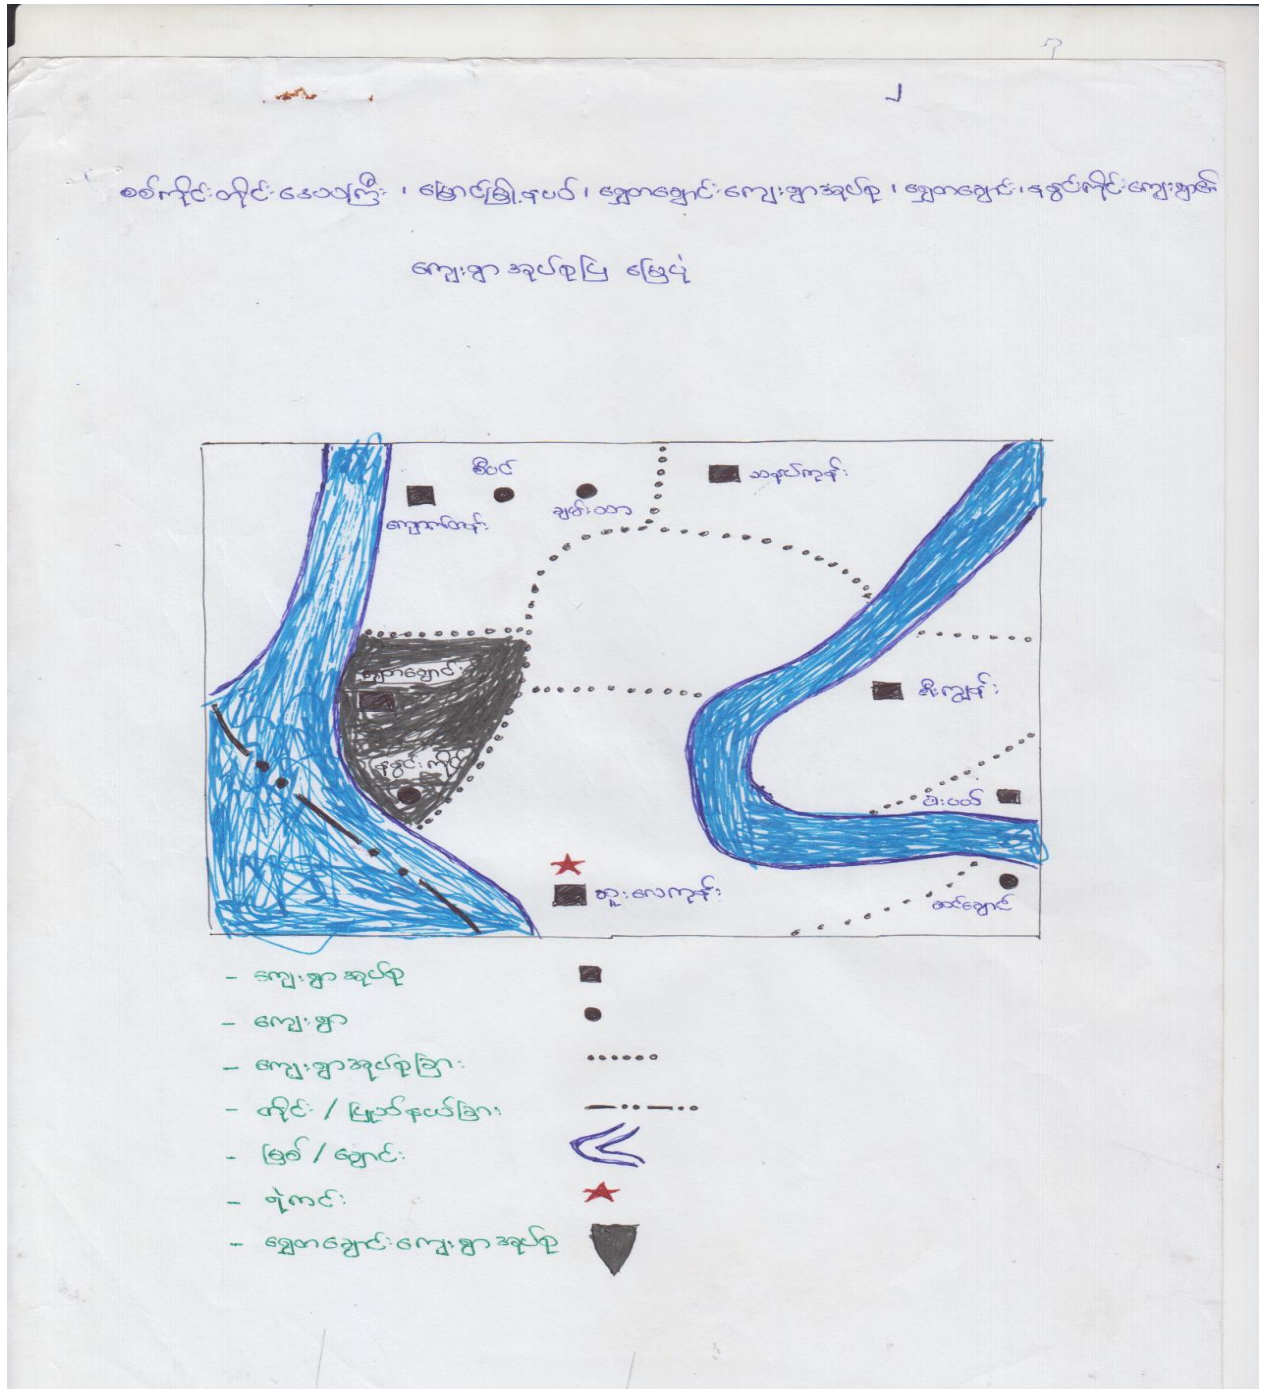 ၂
စစ်ကိုင်းတိုင်းဒေသကြီး ၊ မြောင်မြို့နယ် ၊ ရွှေတချောင်းကျေးရွာအုပ်စု ၊ ရွှေတချောင်း ၊ နနွင်းကိုင်းကျေးရွာ၏
ကျေးရွာအုပ်စုပြ မြေပုံ
ဆီပင်
သနပ်ကုန်း
ချမ်းသာ
ကျောက်တန်း
ရွှေတချောင်း
ဆီးကျွန်း
နနွင်းကိုင်
ထူးလေကုန်း
ဆင်ချောင်
- ကျေးရွာအုပ်စု
- ကျေးရွာ
- ကျေးရွာအုပ်စုခြား
- တိုင်း / ပြည်နယ်ခြား
- မြစ် / ချောင်း
- ရဲကင်း
- ရွှေတချောင်းကျေးရွာအုပ်စု